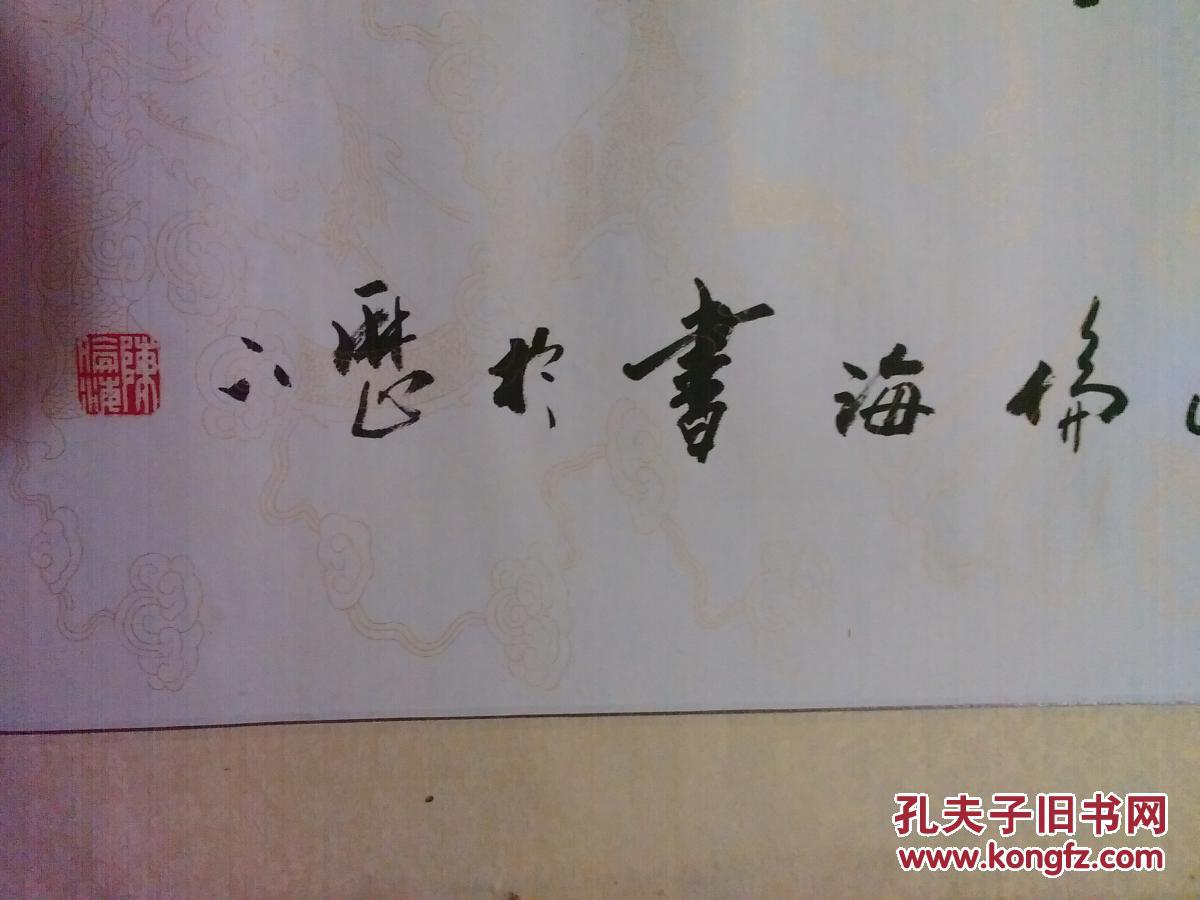 倫海書於歷下
陳倫海
孔夫子旧书网
www.kongfz.com